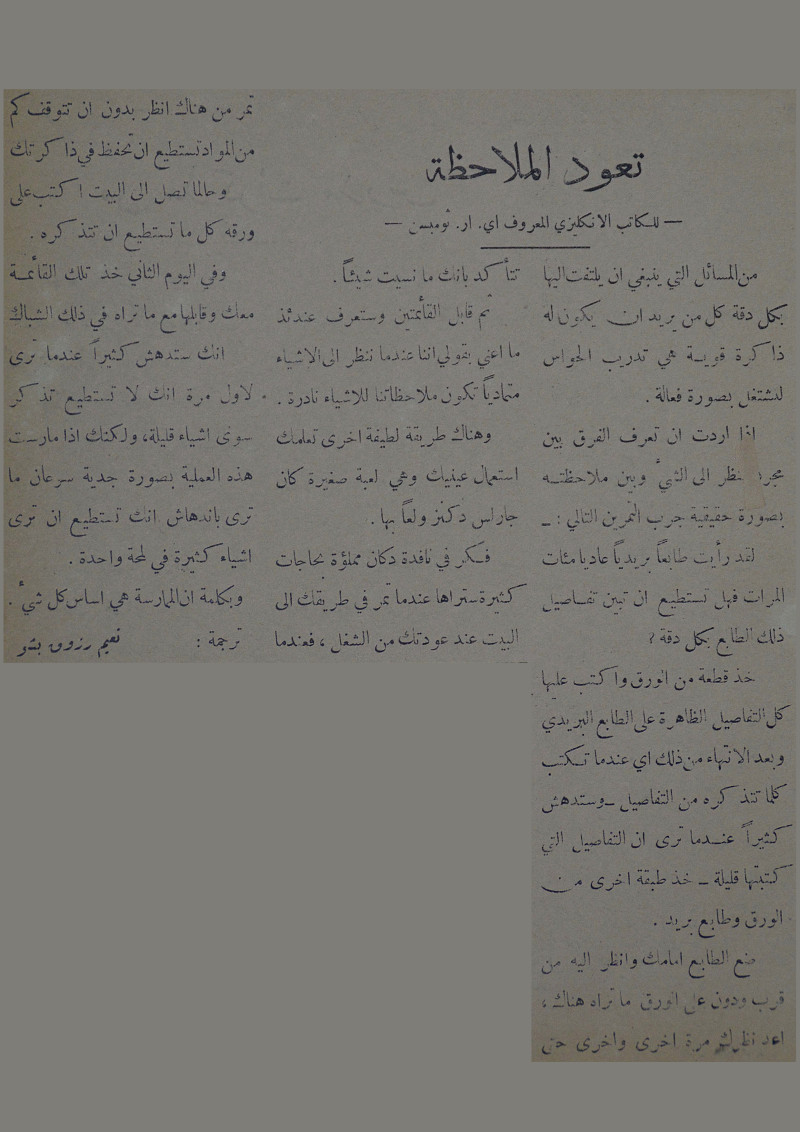 تعود الملاحظة
— للكاتب الانكليزي المعروف اي. ار. تومبسن —
من المسائل التي ينبغي ان يلتفت اليها
بكل دقة كل من يريد ان يكون له
ذاكرة قوية هي تدريب الحواس
لتشتغل بصورة فعالة .
اذا اردت ان تعرف الفرق بين
مجرد نظر الى الشيء وبين ملاحظته
بصورة حقيقية جرب التمرين التالي : ـ
لقد رأيت طابعاً بريدياً عاديا مئات
المرات فهل تستطيع ان تبين تفاصيل
ذلك الطابع بكل دقة ؟
خذ قطعة من الورق واكتب عليها
كل التفاصيل الظاهرة على الطابع البريدي
وبعد الانتهاء من ذلك اي عندما تكتب
كلما تتذكره من التفاصيل ـ وستدهش
كثيراً عندما ترى ان التفاصيل التي
كتبتها قليلة ـ خذ طبقة اخرى من
الورق وطابع بريد .
ضع الطابع امامك وانظر اليه من
قرب ودون على الورق ما تراه هناك ،
اعد نظرك مرة اخرى واخرى حتى
تتأكد بانك ما نسيت شيئاً .
ثم قابل القأئمتين وستعرف عندئذ
ما اعني بقولي اننا عندما ننظر الى الاشياء
متمادياً تكون ملاحظاتنا للاشياء نادرة .
وهناك طريقة لطيفة اخرى تعلمك
استعمال عينيك وهي لعبة صغيرة كان
جارلس دكنز ولعاً بها .
فكر في نافدة دكان مملؤة بحاجات
كثيرة ستراها عندما تمر في طريقك الى
البيت عند عودتك من الشغل ، فعندما
تمر من هناك انظر بدون ان تتوقف كم
من المواد تستطيع ان تحفظ في ذاكرتك
وحالما تصل الى البيت اكتب على
ورقه كل ما تستطيع ان تتذكره .
وفي اليوم الثاني خذ تلك القأئمة
معك وقابلها مع ما تراه في ذلك الشباك
انك ستدهش كثيراً عندما ترى
لاول مرة انك لا تستطيع تذكر
سوى اشياء قليلة، ولكنك اذا مارست
هذه العملية بصورة جدية سرعان ما
ترى باندهاش انك تستطيع ان ترى
اشياء كثيرة في لمحة واحدة .
وبكلمة ان الممارسة هي اساس كل شيء .
ترجمة : نعيم رزوق بشو